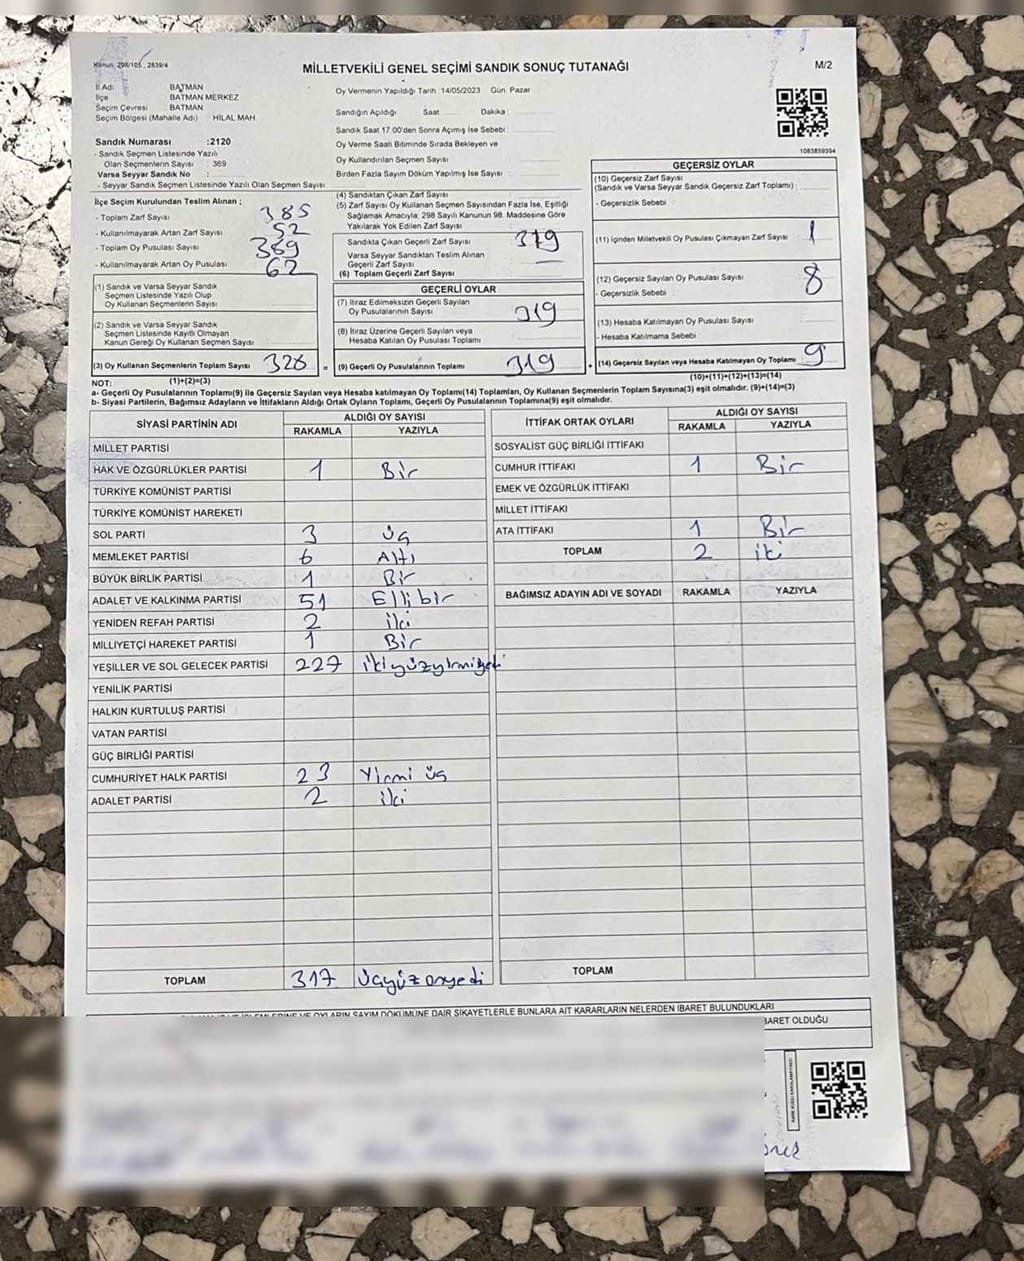 Kanun: 298/105 , 2839/4
MİLLETVEKİLİ GENEL SEÇİMİ SANDIK SONUÇ TUTANAĞI
M/2
İl Adı BATMAN
İlçe BATMAN MERKEZ
Seçim Çevresi BATMAN
Seçim Bölgesi (Mahalle Adı) HİLAL MAH
Sandık Numarası :2120
- Sandık Seçmen Listesinde Yazılı
Olan Seçmenlerin Sayısı 369
Varsa Seyyar Sandık No :
- Seyyar Sandık Seçmen Listesinde Yazılı Olan Seçmen Sayısı
Oy Vermenin Yapıldığı Tarih :14/05/2023 Gün Pazar
Sandığın Açıldığı Saat Dakika
Sandık Saat 17:00'den Sonra Açılmış İse Sebebi
Oy Verme Saati Bitiminde Sırada Bekleyen ve
Oy Kullandırılan Seçmen Sayısı
Birden Fazla Sayım Döküm Yapılmış İse Sayısı
1083859394
İlçe Seçim Kurulundan Teslim Alınan ;
- Toplam Zarf Sayısı 385
- Kullanılmayarak Artan Zarf Sayısı 52
- Toplam Oy Pusulası Sayısı 389
- Kullanılmayarak Artan Oy Pusulası 62
(1) Sandık ve Varsa Seyyar Sandık
Seçmen Listesinde Yazılı Olup
Oy Kullanan Seçmenlerin Sayısı
(2) Sandık ve Varsa Seyyar Sandık
Seçmen Listesinde Kayıtlı Olmayan
Kanun Gereği Oy Kullanan Seçmen Sayısı
(3) Oy Kullanan Seçmenlerin Toplam Sayısı 328
(1)+(2)=(3)
(4) Sandıktan Çıkan Zarf Sayısı
(5) Zarf Sayısı Oy Kullanan Seçmen Sayısından Fazla İse, Eşitliği
Sağlamak Amacıyla; 298 Sayılı Kanunun 98. Maddesine Göre
Yakılarak Yok Edilen Zarf Sayısı
Sandıkta Çıkan Geçerli Zarf Sayısı 319
Varsa Seyyar Sandıktan Teslim Alınan
Geçerli Zarf Sayısı
(6) Toplam Geçerli Zarf Sayısı
GEÇERLİ OYLAR
(7) İtiraz Edilmeksizin Geçerli Sayılan
Oy Pusulalarının Sayısı 319
(8) İtiraz Üzerine Geçerli Sayılan veya
Hesaba Katılan Oy Pusulası Toplamı
= (9) Geçerli Oy Pusulalarının Toplamı 319
GEÇERSİZ OYLAR
(10) Geçersiz Zarf Sayısı
(Sandık ve Varsa Seyyar Sandık Geçersiz Zarf Toplamı)
- Geçersizlik Sebebi :
(11) İçinden Milletvekili Oy Pusulası Çıkmayan Zarf Sayısı 1
(12) Geçersiz Sayılan Oy Pusulası Sayısı 8
- Geçersizlik Sebebi :
(13) Hesaba Katılmayan Oy Pusulası Sayısı
- Hesaba Katılmama Sebebi :
+ (14) Geçersiz Sayılan veya Hesaba Katılmayan Oy Toplamı 9
(10)+(11)+(12)+(13)=(14)
NOT:
a- Geçerli Oy Pusulalarının Toplamı(9) ile Geçersiz Sayılan veya Hesaba katılmayan Oy Toplamı(14) Toplamları, Oy Kullanan Seçmenlerin Toplam Sayısına(3) eşit olmalıdır. (9)+(14)=(3)
b- Siyasi Partilerin, Bağımsız Adayların ve İttifakların Aldığı Ortak Oyların Toplamı, Geçerli Oy Pusulalarının Toplamına(9) eşit olmalıdır.
SİYASİ PARTİNİN ADI ALDIĞI OY SAYISI
RAKAMLA YAZIYLA
MİLLET PARTİSİ
HAK VE ÖZGÜRLÜKLER PARTİSİ 1 Bir
TÜRKİYE KOMÜNİST PARTİSİ
TÜRKİYE KOMÜNİST HAREKETİ
SOL PARTİ 3 üç
MEMLEKET PARTİSİ 6 Altı
BÜYÜK BİRLİK PARTİSİ 1 Bir
ADALET VE KALKINMA PARTİSİ 51 Elli bir
YENİDEN REFAH PARTİSİ 2 iki
MİLLİYETÇİ HAREKET PARTİSİ 1 Bir
YEŞİLLER VE SOL GELECEK PARTİSİ 227 ikiyüzyirmiyedi
YENİLİK PARTİSİ
HALKIN KURTULUŞ PARTİSİ
VATAN PARTİSİ
GÜÇ BİRLİĞİ PARTİSİ
CUMHURİYET HALK PARTİSİ 23 Yirmi üç
ADALET PARTİSİ 2 iki
TOPLAM 317 üçyüz onyedi
İTTİFAK ORTAK OYLARI ALDIĞI OY SAYISI
RAKAMLA YAZIYLA
SOSYALİST GÜÇ BİRLİĞİ İTTİFAKI
CUMHUR İTTİFAKI 1 Bir
EMEK VE ÖZGÜRLÜK İTTİFAKI
MİLLET İTTİFAKI
ATA İTTİFAKI 1 Bir
TOPLAM 2 iki
BAĞIMSIZ ADAYIN ADI VE SOYADI RAKAMLA YAZIYLA
TOPLAM
OYLARIN SAYIM DÖKÜMÜNE DAİR ŞİKAYETLERLE BUNLARA AİT KARARLARIN NELERDEN İBARET BULUNDUKLARI
BARET OLDUĞU